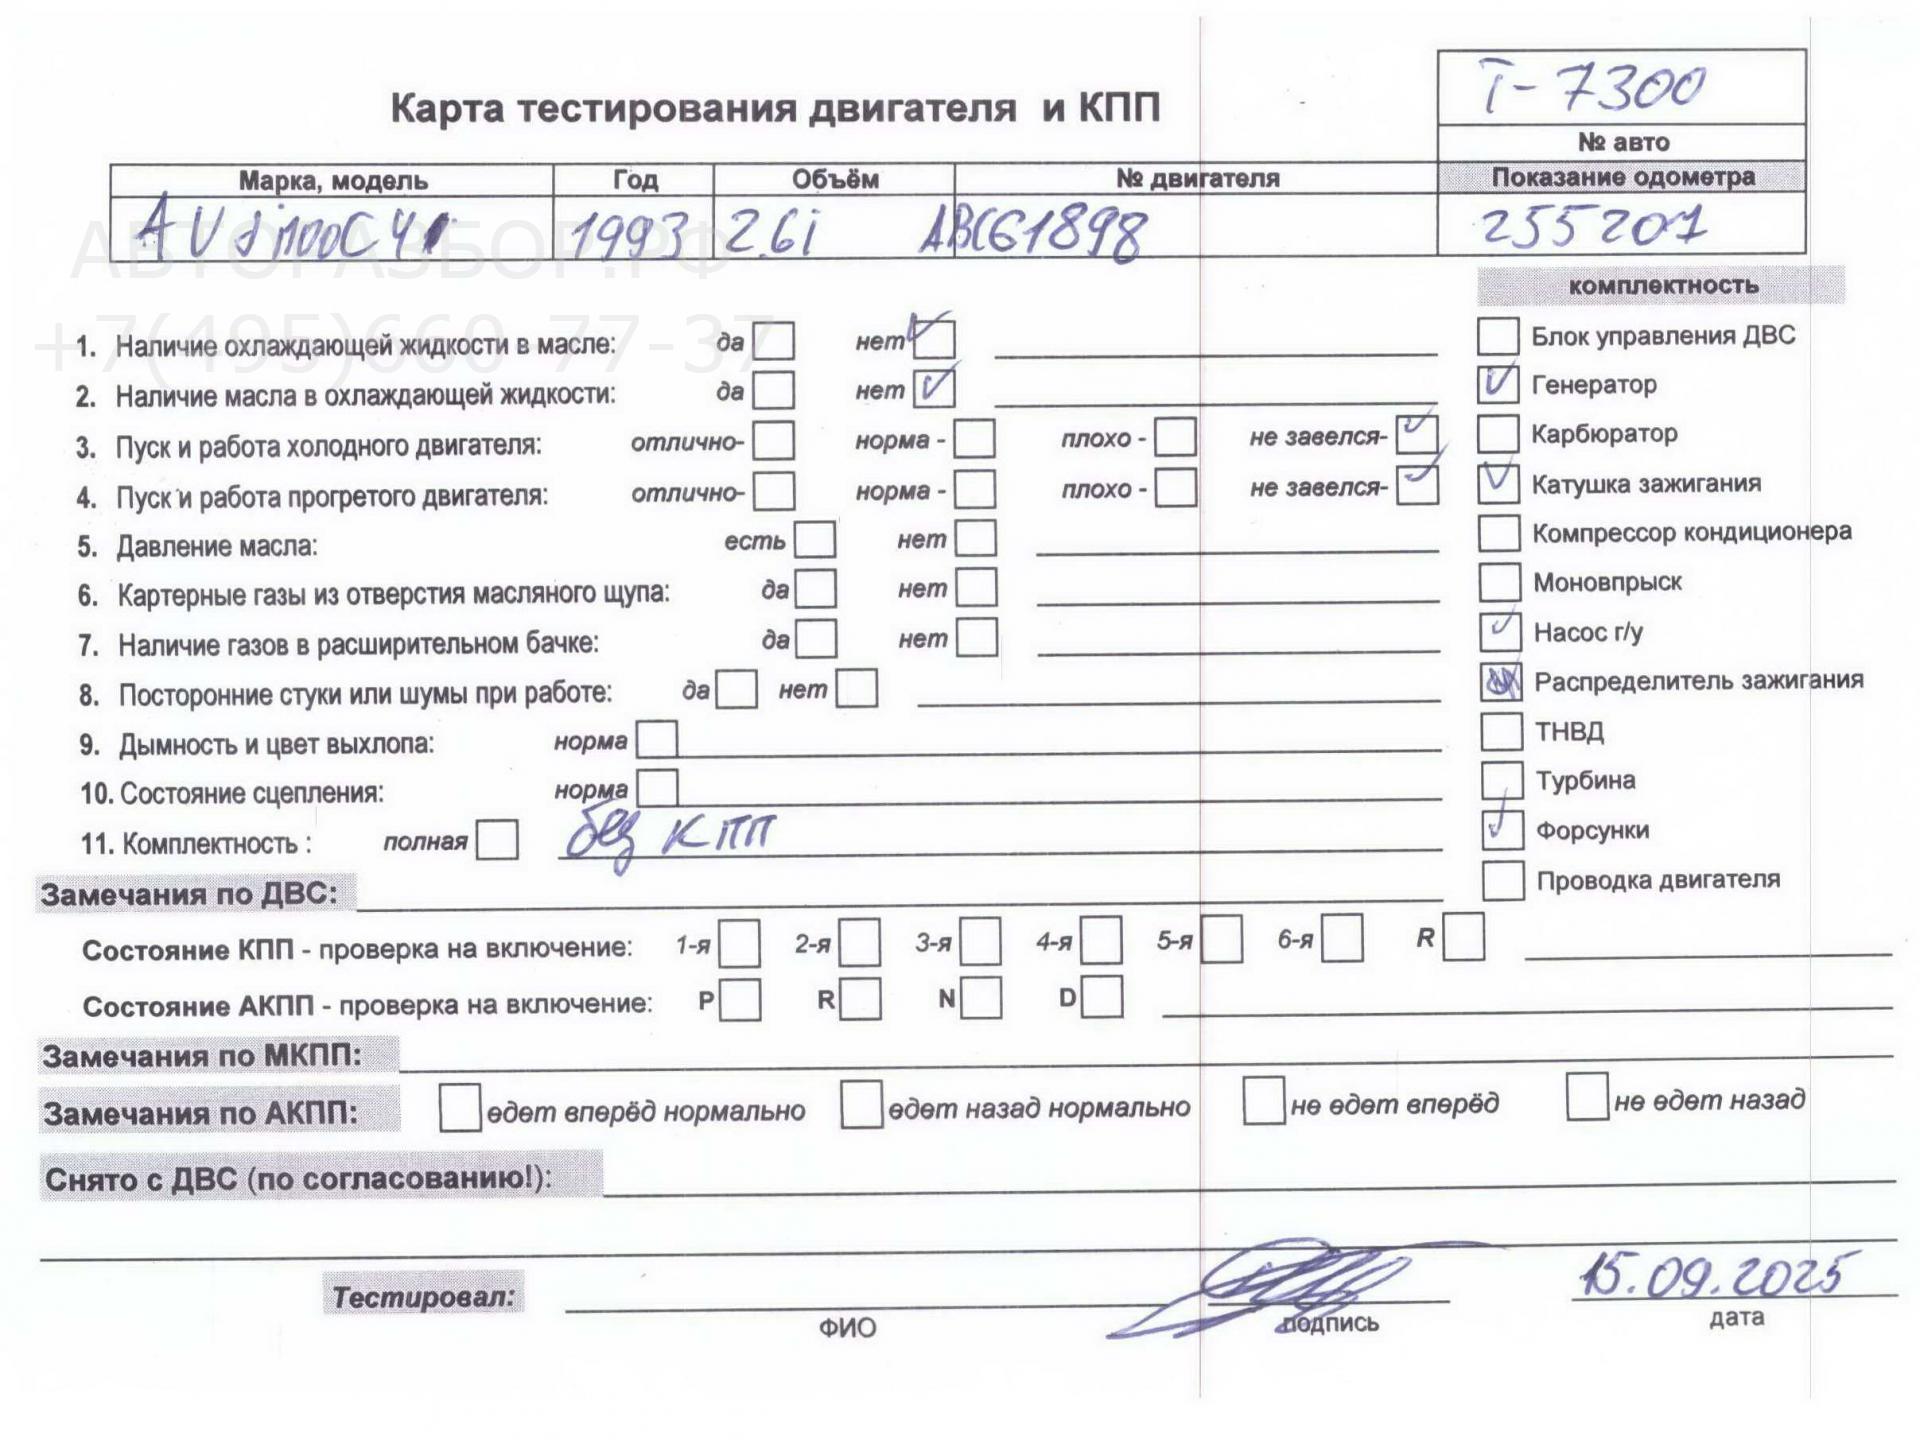 Т-7300
Карта тестирования двигателя и КПП
№ авто
Марка, модель Год Объём № двигателя Показание одометра
AUdi100C4 1993 2.6i ABC61898 255207
АВТОРАЗБОР.РФ
+7(495)660-77-37
комплектность
1. Наличие охлаждающей жидкости в масле: да нет Блок управления ДВС
2. Наличие масла в охлаждающей жидкости: да нет Генератор
3. Пуск и работа холодного двигателя: отлично- норма - плохо - не завелся- Карбюратор
4. Пуск и работа прогретого двигателя: отлично- норма - плохо - не завелся- Катушка зажигания
5. Давление масла: есть нет Компрессор кондиционера
6. Картерные газы из отверстия масляного щупа: да нет Моновпрыск
7. Наличие газов в расширительном бачке: да нет Насос г/у
8. Посторонние стуки или шумы при работе: да нет Распределитель зажигания
9. Дымность и цвет выхлопа: норма ТНВД
10. Состояние сцепления: норма Турбина
11. Комплектность : полная без КПП Форсунки
Замечания по ДВС: Проводка двигателя
Состояние КПП - проверка на включение: 1-я 2-я 3-я 4-я 5-я 6-я R
Состояние АКПП - проверка на включение: P R N D
Замечания по МКПП:
Замечания по АКПП: едет вперёд нормально едет назад нормально не едет вперёд не едет назад
Снято с ДВС (по согласованию!):
Тестировал: 15.09.2025
ФИО подпись дата